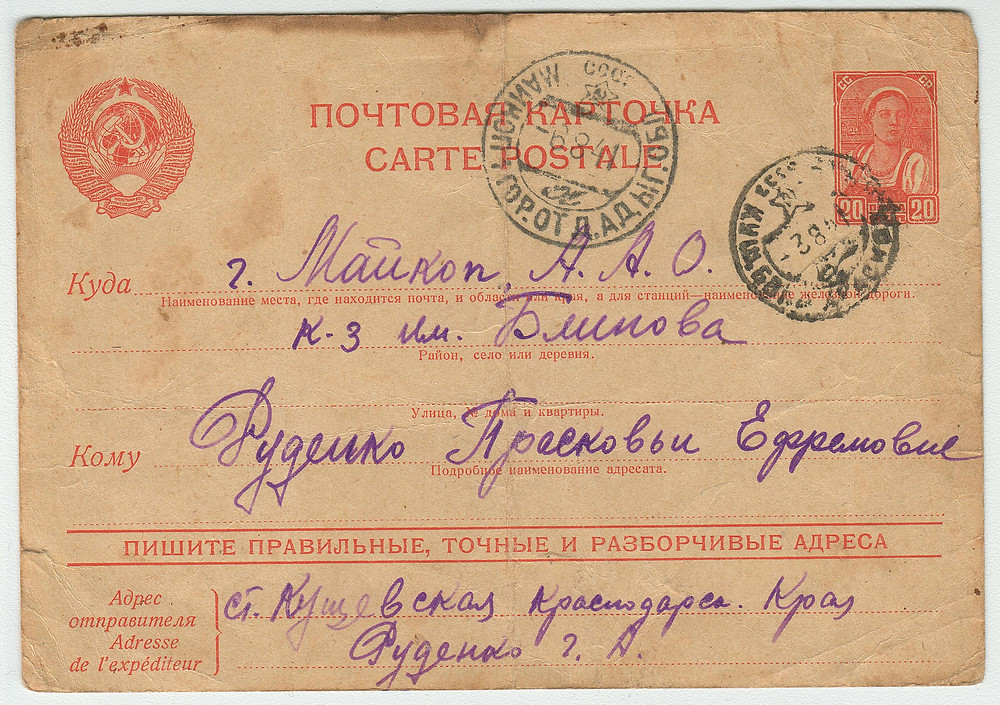 ПОЧТОВАЯ КАРТОЧКА
CARTE POSTALE
СС СР
20 20
СССР
МАЙКОП ГОР.ОТД.АДЫГ.ОБЛ
-6 8 41
3 8 4
Куда г. Майкоп А. А. О.
Наименование места, где находится почта, и области или края, а для станций—наименование железной дороги.
к-з им. Блинова
Район, село или деревня.
Улица, № дома и квартиры.
Кому Руденко Прасковьи Ефремовне
Подробное наименование адресата.
ПИШИТЕ ПРАВИЛЬНЫЕ, ТОЧНЫЕ И РАЗБОРЧИВЫЕ АДРЕСА
Адрес отправителя
Adresse de l'expéditeur
ст. Кущевская Краснодарск. Края
Руденко г. А.